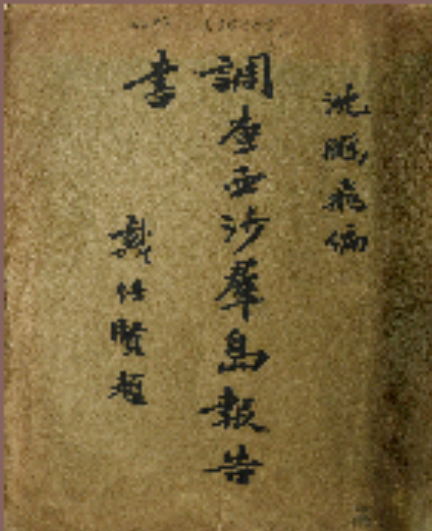 沈鵬飛編
調查西沙羣島報告
書
戴任賢題